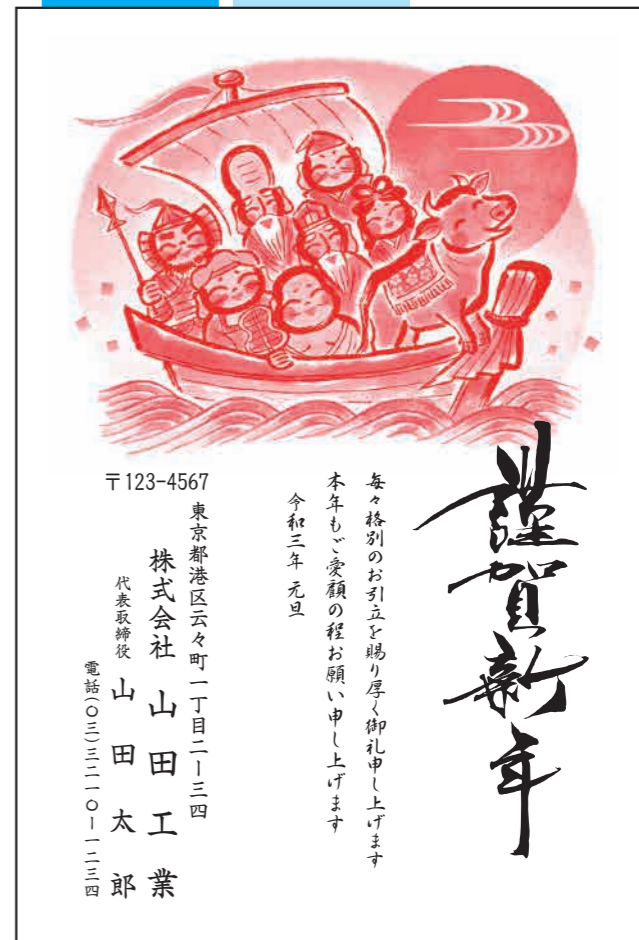 謹賀新年
毎々格別のお引立を賜り厚く御礼申し上げます
本年もご愛顧の程お願い申し上げます
令和三年 元旦
〒123-4567
東京都港区云々町一丁目二ー三四
株式会社 山田工業
代表取締役 山田太郎
電話(〇三)三二一〇ー一二三四